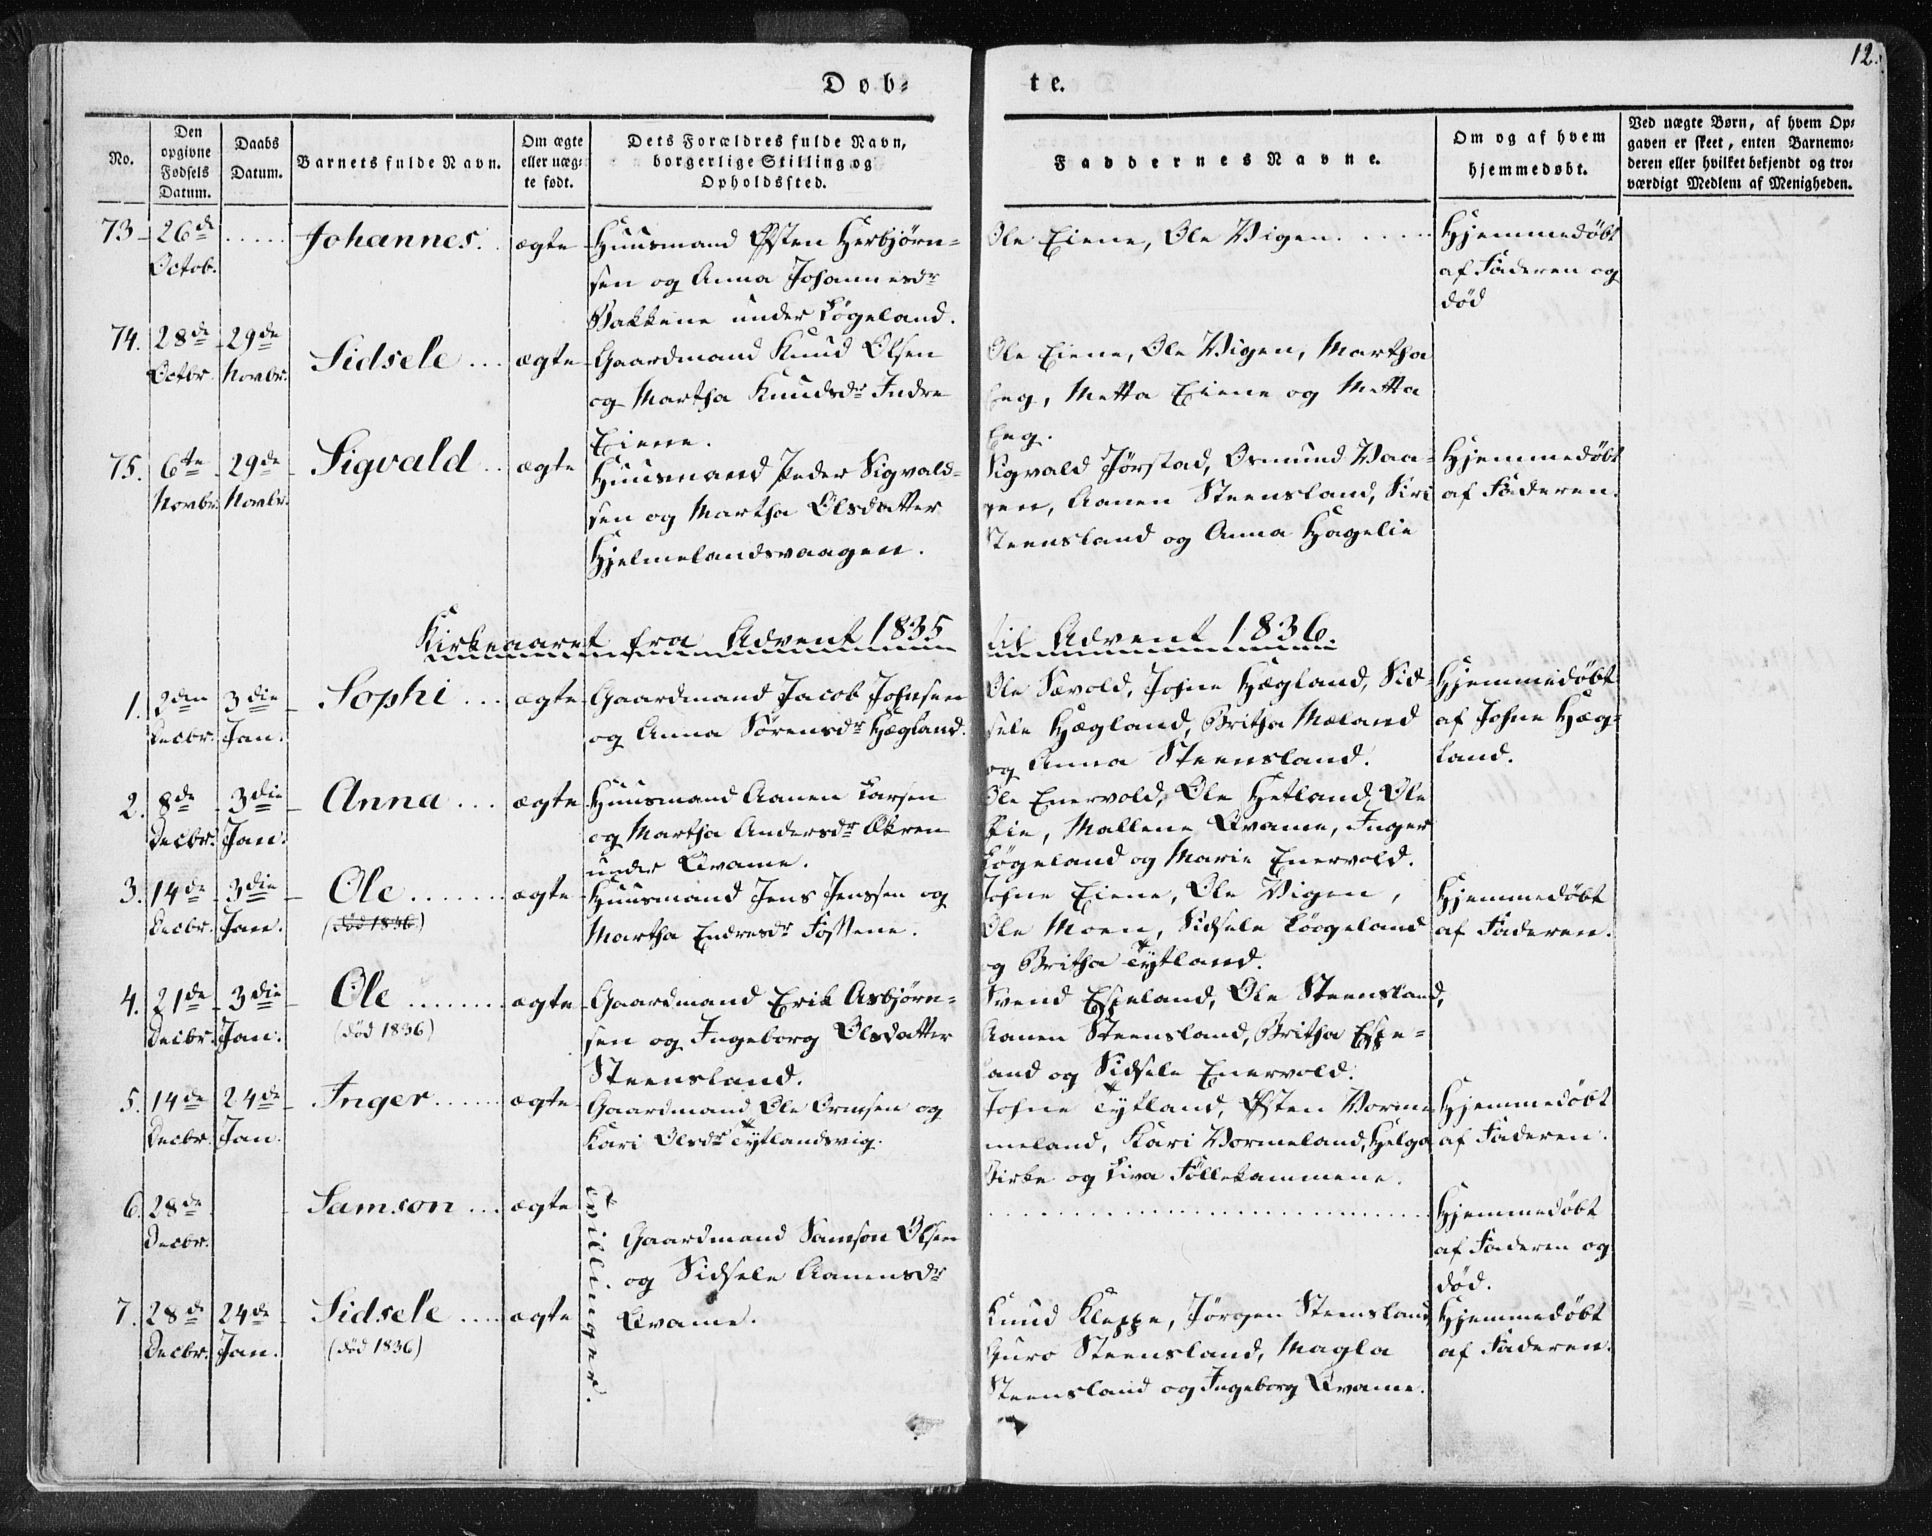 12.
Døb-te.
No.
Den opgivne Fødsels Datum.
Daabs Datum.
Barnets fulde Navn.
Om ægte eller uægte født.
Dets Forældres fulde Navn, borgerlige Stilling og Opholdssted.
Faddernes Navne.
Om og af hvem hjemmedøbt.
Ved uægte Børn, af hvem Opgaven er skeet, enten Barnemoderen eller hvilket bekjendt og troværdigt Medlem af Menigheden.
73 26de Octob. ..... Johannes. ægte
Huusmand Østen Herbjørn-
sen og Anna Johannesdr
Bakkene under Løgeland.
Ole Eiene, Ole Vigen.....
Hjemmedøbt
af Faderen og
død
74. 28de Octbr. 29de Novbr. Sidsele ... ægte
Gaardmand Knud Olsen
og Martha Knudsdr Indre
Eiene.
Ole Eiene, Ole Vigen, Martha
Eeg, Metta Eiene og Metta
Eeg.
75. 6te Novbr. 29de Novbr. Sigvald .. ægte
Huusmand Peder Sigvald-
sen og Martha Olsdatter
Hjelmelandsvaagen.
Sigvald Jørstad, Osmund Vaa-
gen, Aanen Steensland, Siri
Steensland og Anna Hagelie
Hjemmedøbt
af Faderen.
Kirkeaaret fra Advent 1835 til Advent 1836.
1. 2den Decbr. 3die Jan. Sophi ... ægte
Gaardmand Jacob Johnsen
og Anna Sørensdr Hægland.
Ole Sævold, Johne Hægland, Sid-
sele Hægland, Britha Mæland
og Anna Steensland.
Hjemmedøbt
af Johne Hæg-
land.
2. 8de Decbr. 3die Jan. Anna ... ægte
Huusmand Aanen Larsen
og Martha Andersdr Ækren
under Qvame.
Ole Enervold, Ole Hetland, Ole
Lie, Mallene Qvame, Inger
Løgeland og Marie Enervold.
3. 14de Decbr. 3die Jan. Ole ....... ægte
(død 1836)
Huusmand Jens Jenssen og
Martha Endresdr Fossene.
Johne Eiene, Ole Vigen,
Ole Moen, Sidsele Løogeland
og Britha Tytland.
Hjemmedøbt
af Faderen.
4. 21de Decbr. 3die Jan. Ole ....... ægte
(død 1836)
Gaardmand Erik Asbjørn-
sen og Ingeborg Olsdatter
Steensland.
Svend Espeland, Ole Steensland,
Aanen Steensland, Britha Espe-
land og Sidsele Enervold.
5. 14de Decbr. 24de Jan. Inger ...... ægte
Gaardmand Ole Ormsen og
Kari Olsdr Tytlandsvig.
Johne Tytland, Østen Vorme
meland, Kari Vormeland, Helga
Birke og Liva Føllekammene.
Hjemmedøbt
af Faderen.
6. 28de Decbr. Samson ... ægte
Tvillinger.
Gaardmand Samson Olsen
og Sidsele Aanensdr
Qvame.
Hjemmedøbt
af Faderen og
død.
7. 28de Decbr. 24de Jan. Sidsele .... ægte
(død 1836)
Knud Kleppe, Jørgen Stensland
Guro Steensland, Magla
Steensland og Ingeborg Qvame.
Hjemmedøbt
af Faderen.